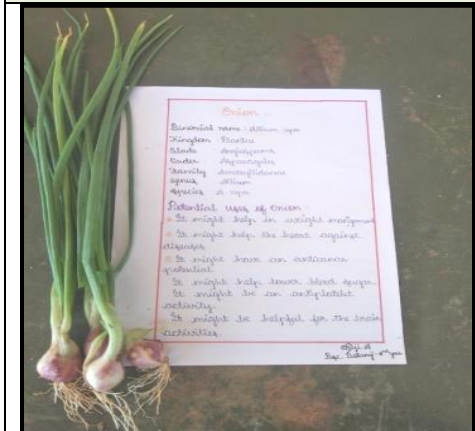 Onion
Binomial name : Allium cepa
Kingdom Plantae
Clade Angiosperms
Order Asparagales
Family Amaryllidaceae
Genus Allium
Species A. cepa
Potential Uses of Onion :
It might help in weight management
It might help the heart against
diseases
It might have an anticancer
potential
It might help lower blood sugar
It might be an antiplatelet
activity.
It might be helpful for the brain
activities.